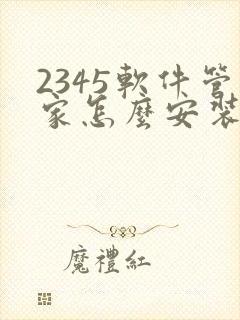 2345軟件管
家怎麼安裝
魔禮紅